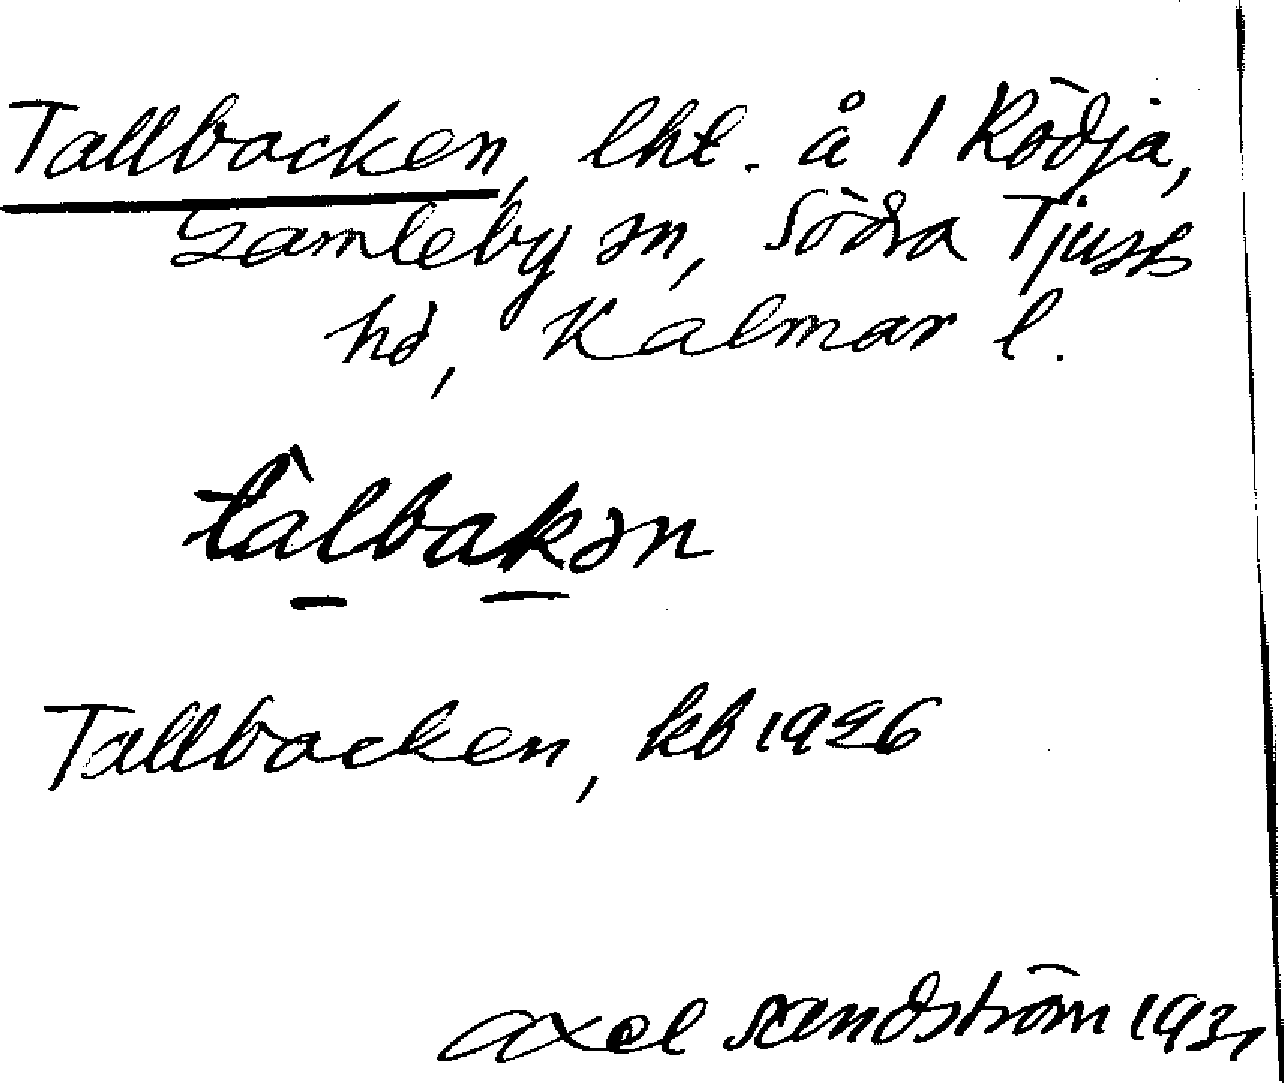 Tallbacken, lht. å 1 Rödja,
Gamleby sn, Södra Tjusts
hd, Kalmar l.
tàlbakən
Tallbacken, kb 1926
Axel Sandström 1931